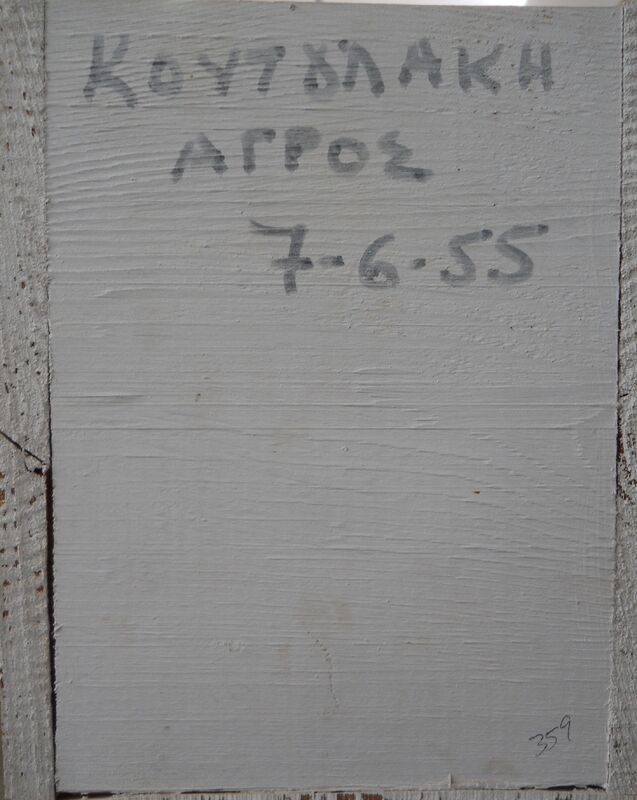 ΚΟΥΤȢΛΑΚΗ
ΑΓΡΟΣ
7-6-55
359